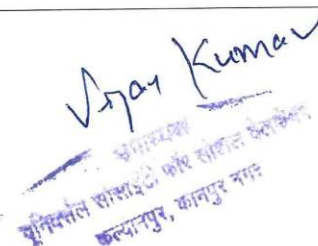 Vijay Kumar
उपाध्यक्ष
यूनिवर्सल सोसाइटी फॉर सोशल वेलफेयर
कल्यानपुर, कानपुर नगर